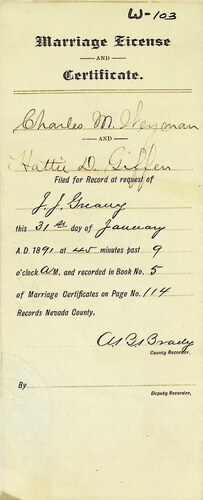 W-103
Marriage License
AND
Certificate.
Charles M.
AND
Hattie D. Giffen
Filed for Record at request of
J. J. Greany
this 31st day of January
A.D. 1891 at 45 minutes past 9
o'clock A M, and recorded in Book No. 5
of Marriage Certificates on Page No. 114
Records Nevada County.
Brady
County Recorder.
By
Deputy Recorder,